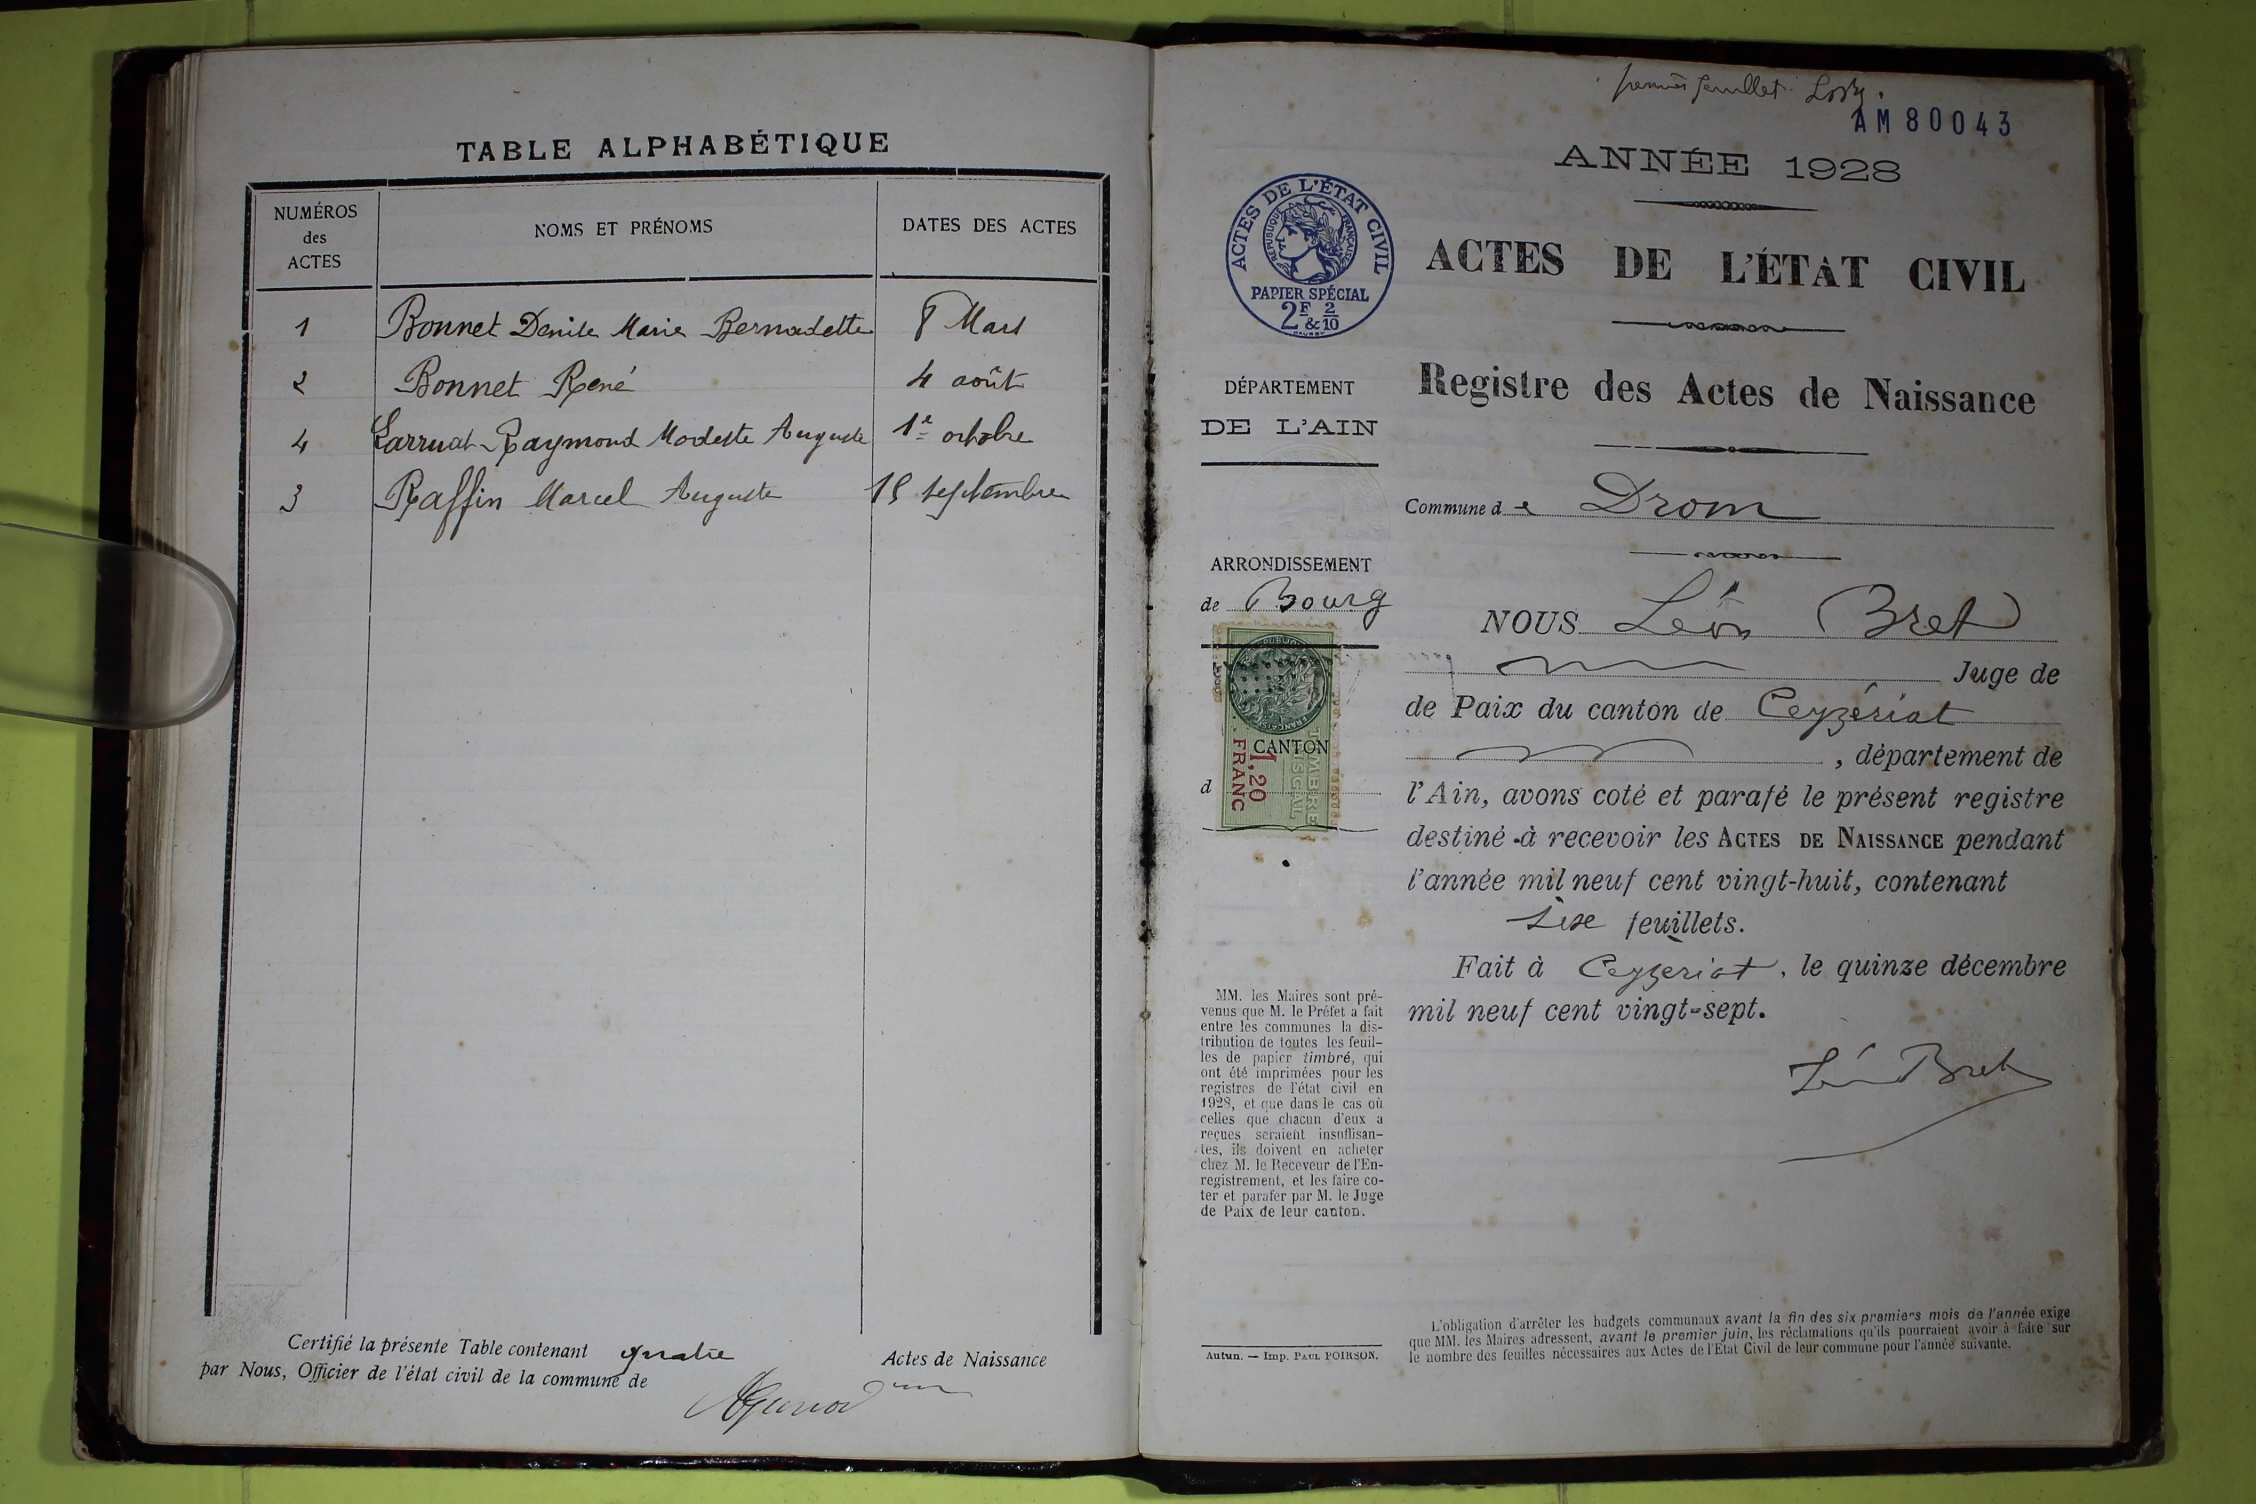 TABLE ALPHABÉTIQUE
NUMÉROS
des
ACTES
NOMS ET PRÉNOMS
DATES DES ACTES
1 Bonnet Denise Marie Bernadette 8 Mars
2 Bonnet René 4 août
4 Larruat Raymond Modeste Auguste 1er octobre
3 Raffin Marcel Auguste 15 septembre
Certifié la présente Table contenant quatre Actes de Naissance
par Nous, Officier de l'état civil de la commune de
premier feuillet
AM80043
ANNÉE 1928
ACTES DE L'ÉTAT CIVIL
RÉPUBLIQUE FRANÇAISE
PAPIER SPÉCIAL
2F & 2/10
ACTES DE L'ÉTAT CIVIL
Registre des Actes de Naissance
DÉPARTEMENT
DE L'AIN
Commune de Drom
ARRONDISSEMENT
de Bourg
CANTON
d
1,20
FRANC
TIMBRE
FISCAL
NOUS Léon Bret
Juge de
de Paix du canton de Ceyzériat
, département de
l'Ain, avons coté et parafé le présent registre
destiné à recevoir les ACTES DE NAISSANCE pendant
l'année mil neuf cent vingt-huit, contenant
Six feuillets.
Fait à Ceyzeriat, le quinze décembre
mil neuf cent vingt-sept.
Léon Bret
MM. les Maires sont pré-
venus que M. le Préfet a fait
entre les communes la dis-
tribution de toutes les feuil-
les de papier timbré, qui
ont été imprimées pour les
registres de l'état civil en
1928, et que dans le cas où
celles que chacun d'eux a
reçues seraient insuffisan-
tes, ils doivent en acheter
chez M. le Receveur de l'En-
registrement, et les faire co-
ter et parafer par M. le Juge
de Paix de leur canton.
Autun. — Imp. PAUL POIRSON.
L'obligation d'arrêter les budgets communaux avant la fin des six premiers mois de l'année exige
que MM. les Maires adressent, avant le premier juin, les réclamations qu'ils pourraient avoir à faire sur
le nombre des feuilles nécessaires aux Actes de l'Etat Civil de leur commune pour l'année suivante.